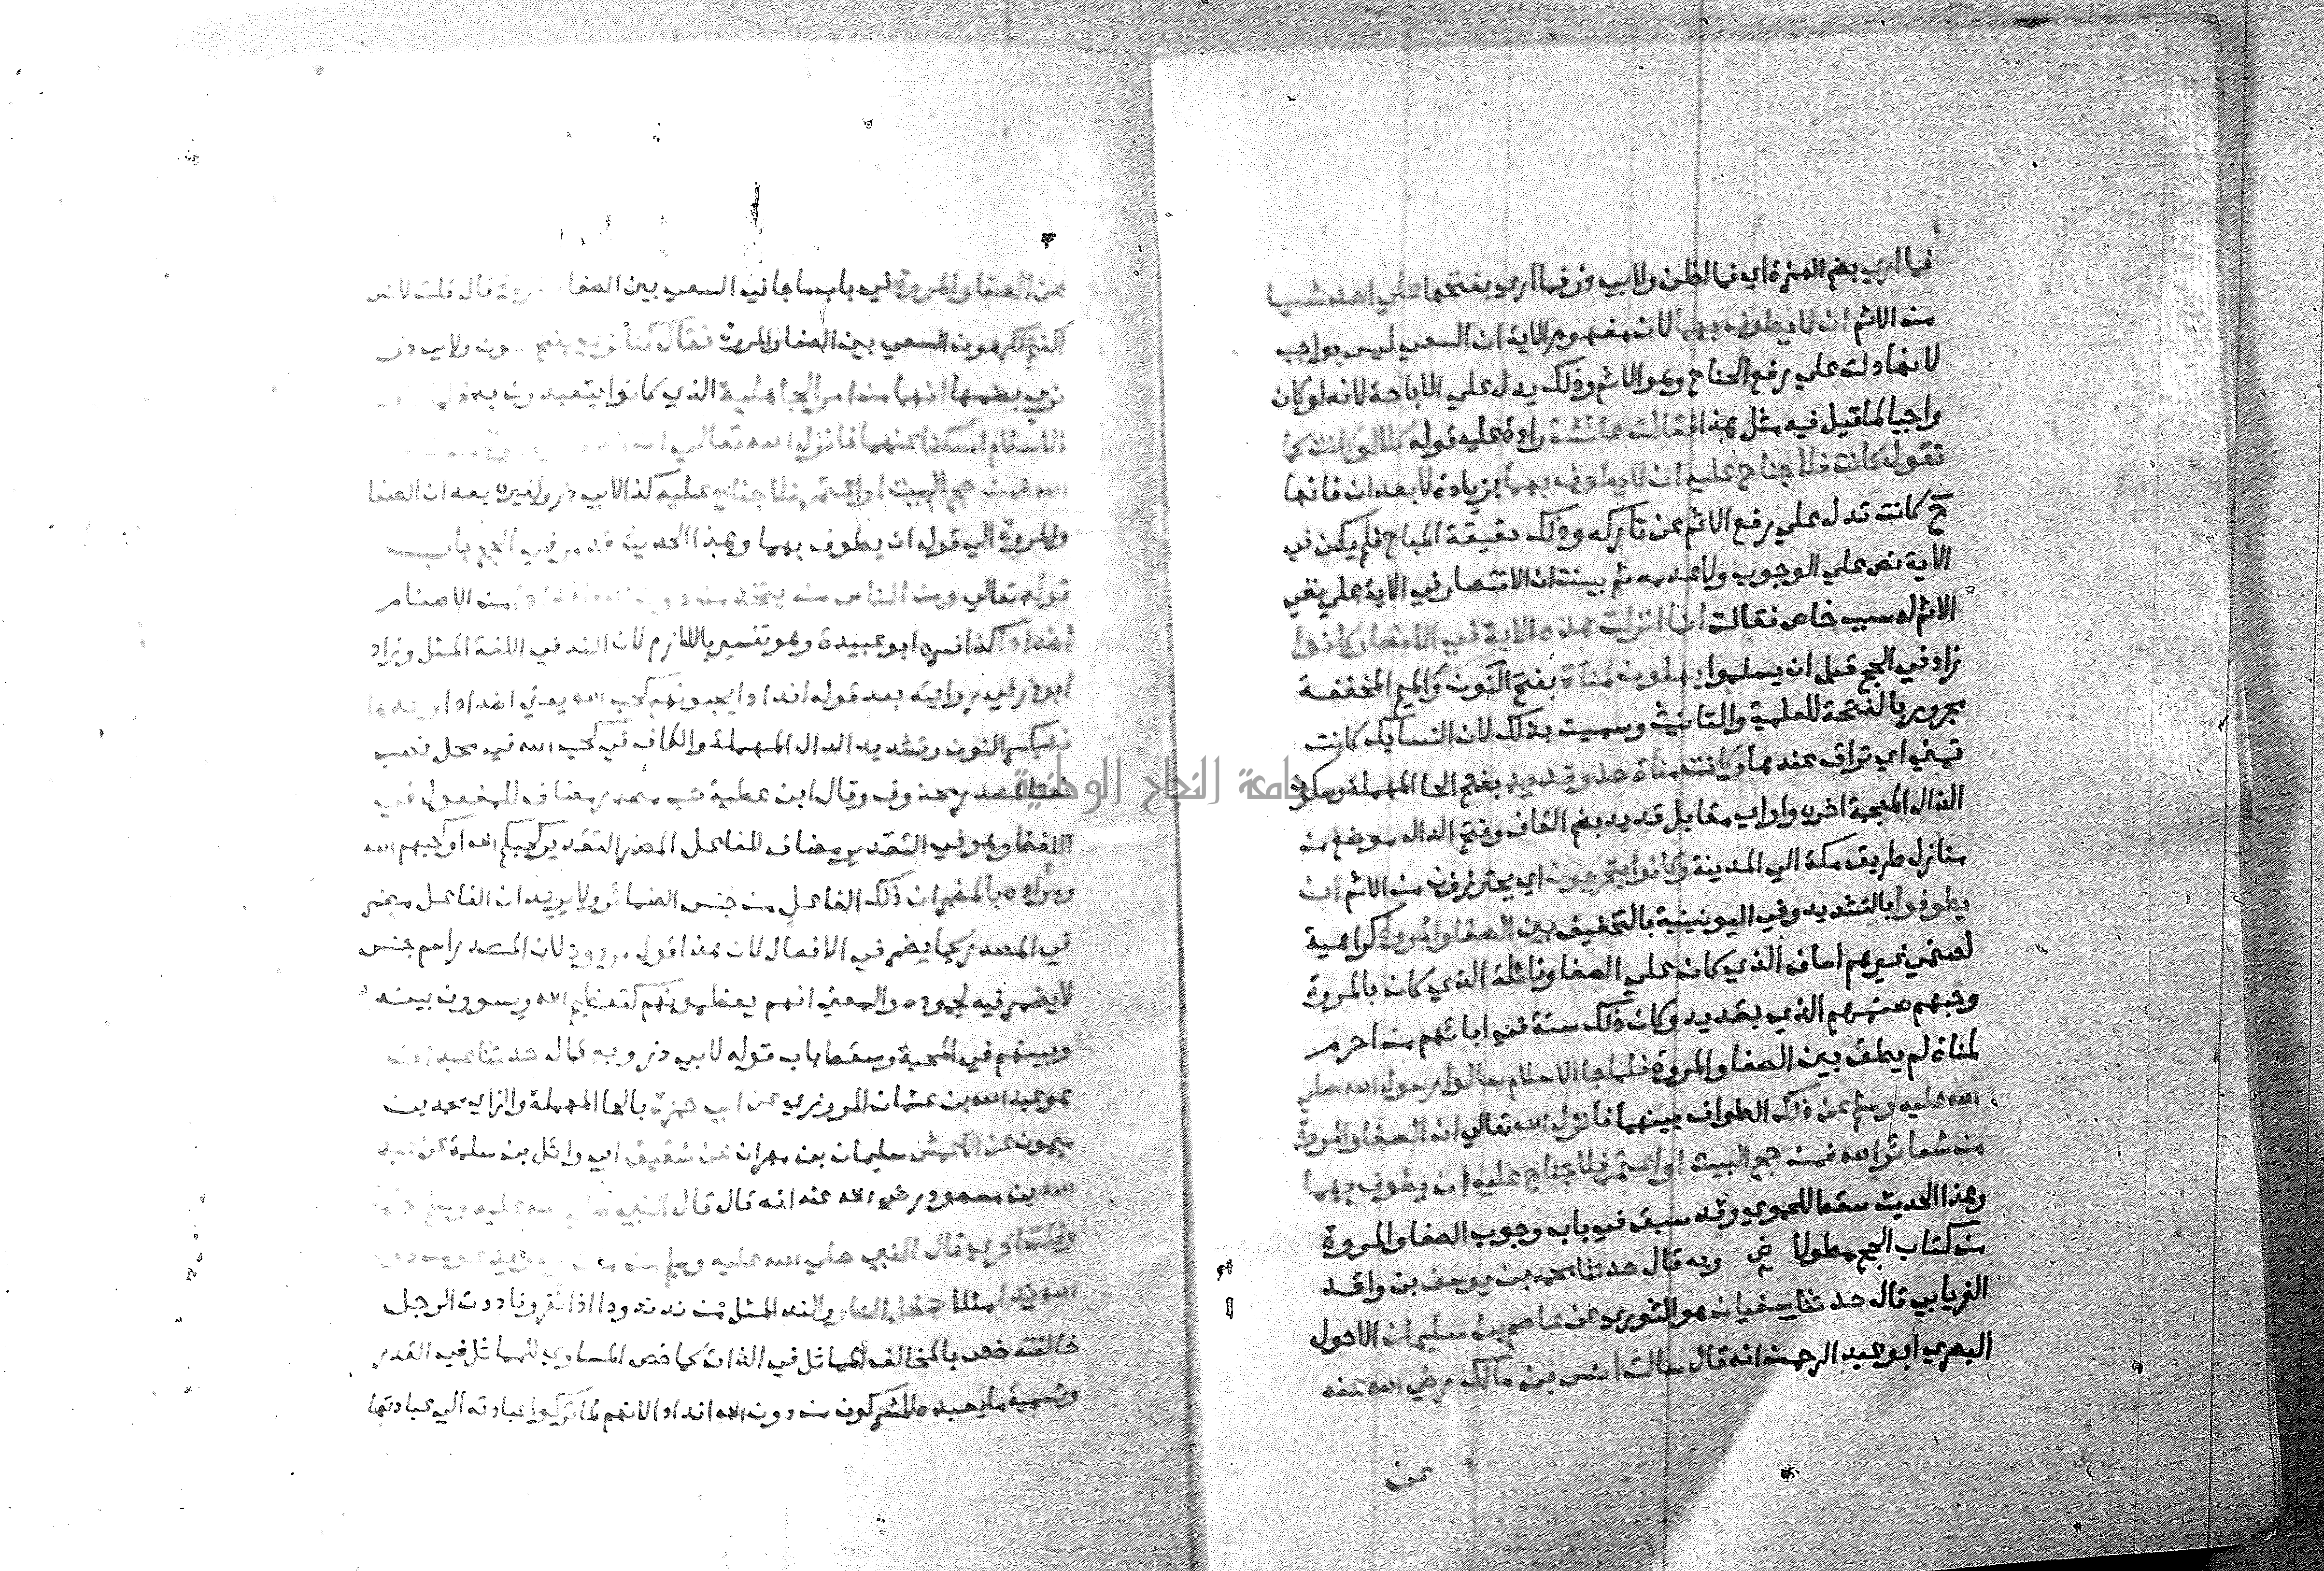 فما اري بضم الهمزة اي فما اظن ولابي ذر فما اري بفتحها علي احد شيا
من الاثم ان لا يطوف بهما لان مفهوم الاية ان السعي ليس بواجب
لانها دلت علي رفع الجناح وهو الاثم وذلك يدل علي الاباحة لانه لو كان
واجبا لما قيل فيه مثل هذا فقالت عائشة رادة عليه قوله كلا لو كانت كما
تقول كانت فلا جناح عليه ان لا يطوف بهما بزيادة لا بعد ان فانها
ح كانت تدل علي رفع الاثم عن تاركه وذلك حقيقة المباح فلم يكن في
الاية نص علي الوجوب ولا عدمه ثم بينت ان الاقتصار في الاية علي نفي
الاثم له سبب خاص فقالت انما انزلت هذه الاية في الانصار كانوا
زاد في الحج قبل ان يسلموا يهلون لمناة بفتح النون والميم المخففة
مجرور بالفتحة للعلمية والتانيث وسميت بذلك لان النسايك كانت
تمني اي تراق عندها وكانت مناة حذو قديد بفتح الحا المهملة وسكون
الذال المعجمة اخره واو اي مقابل قديد بضم القاف وفتح الدال موضع من
منازل طريق مكة الي المدينة وكانوا يتحرجون اي يحترزون من الاثم ان
يطوفوا بالتشديد وفي اليونينية بالتخفيف بين الصفا والمروة كراهية
لصنمي غيرهم اساف الذي كان علي الصفا ونائلة الذي كان بالمروة
وحبهم صنمهم الذي بقديد وكان ذلك سنة في ابائهم من احرم
لمناة لم يطف بين الصفا والمروة فلما جا الاسلام سالوا رسول الله صلي
الله عليه وسلم عن ذلك الطواف بينهما فانزل الله تعالي ان الصفا والمروة
من شعائر الله فمن حج البيت او اعتمر فلا جناح عليه ان يطوف بهما
وهذا الحديث سقط للحموي وقد سبق في باب وجوب الصفا والمروة
من كتاب الحج مطولا وبه قال حدثنا محمد بن يوسف بن واقد
الفريابي قال حدثنا سفيان هو الثوري عن عاصم بن سليمان الاحول
البصري ابو عبد الرحمن انه قال سالت انس بن مالك رضي الله عنه
عن
عن الصفا والمروة في باب ما جا في السعي بين الصفا قال قلت لانس
اكنتم تكرهون السعي بين الصفا والمروة فقال كنا نري بفتح ولابي ذر
نري بضمها انهما من امر الجاهلية الذي كانوا يتعبدون به
الاسلام امسكنا عنهما فانزل الله تعالي ان
الله فمن حج البيت او اعتمر فلا جناح عليه كذا لابي ذر ولغيره بعد ان الصفا
والمروة الي قوله ان يطوف بهما وهذا الحديث قد مر في الحج باب
قوله تعالي ومن الناس من يتخذ من دون من الاصنام
اضدادا كذا فسره ابو عبيدة وهو تفسير باللازم لان الند في اللغة المثل وزاد
ابو ذر في روايته بعد قوله اندادا يحبونهم كحب الله يعني اضدادا
بكسر النون وتشديد الدال المهملة والكاف في كحب الله في محل نصب
نعت لمصدر محذوف وقال ابن عطية حب مصدر مضاف للمفعول في
اللفظ وهو في التقدير مضاف للفاعل المضمر التقدير كحبكم الله او كحبهم الله
ومراده بالمضمر ان ذلك الفاعل من جنس الضمائر ولا يريد ان الفاعل مضمر
في المصدر كما يضمر في الافعال لان هذا قول مردود لان المصدر اسم جنس
لا يضمر فيه لجموده والمعني انهم يعظمونهم كتعظيم الله ويسوون بينه
وبينهم في المحبة وسقط باب قوله لابي ذر وبه قال حدثنا عبدان
هو عبد الله بن عثمان المروزي عن ابي حمزة بالحا المهملة والزاي محمد بن
ميمون عن الاعمش سليمان بن مهران عن شقيق ابي وائل بن سلمة عن عبد
الله بن مسعود رضي الله عنه انه قال قال النبي صلي الله عليه وسلم
وقلت اخري قال النبي صلي الله عليه وسلم من مات وهو يدعو من دون
الله ندا مثلا دخل النار والند المثل من ند ندودا اذا نفر وناددت الرجل
خالفته خص بالمخالف المماثل في الذات كما خص المساوي للمماثل في القدر
وتسمية ما يعبده المشركون من دون الله اندادا لانهم لما تركوا عبادته الي عبادتها
جامعة النجاح الوطنية